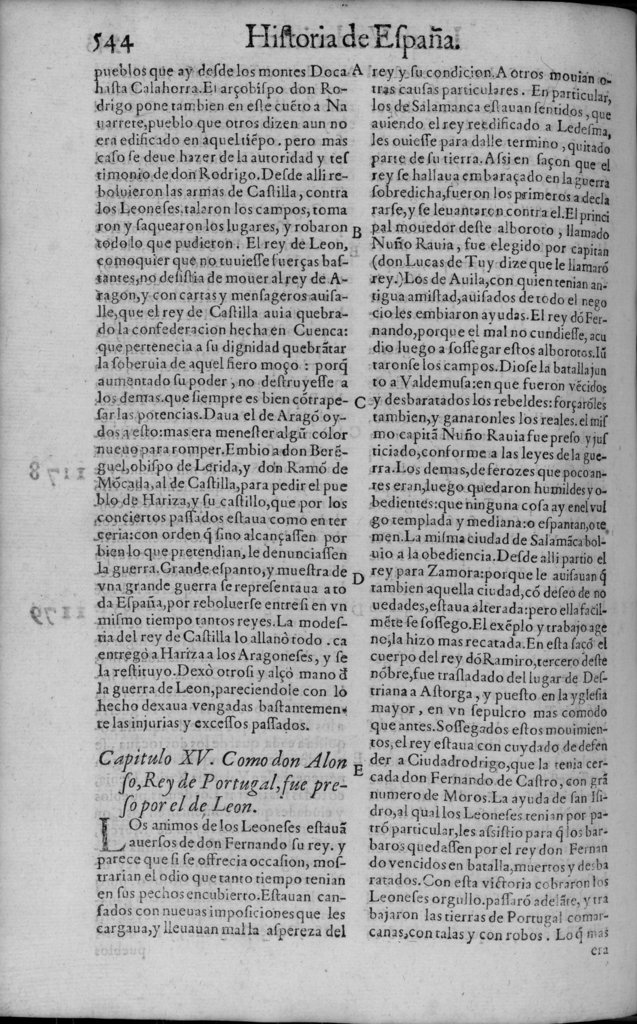 544
Historia de España.
pueblos que ay desde los montes Doca
hasta Calahorra. El arçobispo don Ro-
drigo pone tambien en este cuẽto a Na
uarrete, pueblo que otros dizen aun no
era edificado en aquel tiẽpo. pero mas
caso se deue hazer de la autoridad y tes
timonio de don Rodrigo. Desde alli re-
boluieron las armas de Castilla, contra
los Leoneses. talaron los campos, toma
ron y saquearon los lugares, y robaron
todo lo que pudieron. El rey de Leon,
comoquier que no tuuiesse fuerças bas-
tantes, no desistia de mouer al rey de A-
ragon, y con cartas y mensageros auisa-
lle, que el rey de Castilla auia quebra-
do la confederacion hecha en Cuenca:
que pertenecia a su dignidad quebrãtar
la soberuia de aquel fiero moço: porq̃
aumentado su poder, no destruyesse a
los demas. que siempre es bien cõtrape-
sar las potencias. Daua el de Aragõ oy-
dos a esto: mas era menester algũ color
nueuo para romper. Embio a don Berẽ-
guel, obispo de Lerida, y don Ramõ de
Mõcada, al de Castilla, para pedir el pue
blo de Hariza, y su castillo, que por los
conciertos passados estaua como en ter
ceria: con orden q̃ sino alcançassen por
bien lo que pretendian, le denunciassen
la guerra. Grande espanto, y muestra de
vna grande guerra se representaua a to
da España, por reboluerse entresi en vn
mismo tiempo tantos reyes. La modes-
tia del rey de Castilla lo allanò todo. ca
entregò a Hariza a los Aragoneses, y se
la restituyo. Dexò otrosi y alçò mano đ
la guerra de Leon, pareciendole con lo
hecho dexaua vengadas bastantemen-
te las injurias y excessos passados.
Capitulo XV. Como don Alon
so, Rey de Portugal, fue pre-
so por el de Leon.
LOs animos de los Leoneses estauã
auersos de don Fernando su rey. y
parece que si se offrecia occasion, mos-
trarian el odio que tanto tiempo tenian
en sus pechos encubierto. Estauan can-
sados con nueuas imposiciones que les
cargaua, y lleuauan mal la aspereza del
A
B
C
D
E
rey y su condicion. A otros mouian o-
tras causas particulares. En particular,
los de Salamanca estauan sentidos, que
auiendo el rey reedificado a Ledesma,
les ouiesse para dalle termino, quitado
parte de su tierra. Assi en saçon que el
rey se hallaua embaraçado en la guerra
sobredicha, fueron los primeros a decla
rarse, y se leuantaron contra el. El princi
pal mouedor deste alboroto, llamado
Nuño Rauia, fue elegido por capitan
(don Lucas de Tuy dize que le llamarõ
rey.) Los de Auila, con quien tenian an-
tigua amistad, auisados de todo el nego
cio les embiaron ayudas. El rey dõ Fer-
nando, porque el mal no cundiesse, acu
dio luego a sossegar estos alborotos. Iũ
taronse los campos. Diose la batalla jun
to a Valdemusa: en que fueron vẽcidos
y desbaratados los rebeldes: forçarõles
tambien, y ganaronles los reales. el mis
mo capitã Nuño Rauia fue preso y jus
ticiado, conforme a las leyes de la gue-
rra. Los demas, de ferozes que poco an-
tes eran, luego quedaron humildes y o-
bedientes: que ninguna cosa ay en el vul
go templada y mediana: o espantan, o te
men. La misma ciudad de Salamãca bol-
uio a la obediencia. Desde alli partio el
rey para Zamora: porque le auisauan q̃
tambien aquella ciudad, cõ deseo de no
uedades, estaua alterada: pero ella facil-
mẽte se sossego. El exẽplo y trabajo age
no, la hizo mas recatada. En esta sacò el
cuerpo del rey dõ Ramiro, tercero deste
nõbre, fue trasladado del lugar de Des-
triana a Astorga, y puesto en la yglesia
mayor, en vn sepulcro mas comodo
que antes. Sossegados estos mouimien-
tos, el rey estaua con cuydado de defen
der a Ciudadrodrigo, que la tenia cer-
cada don Fernando de Castro, con grã
numero de Moros. La ayuda de san Isi-
dro, al qual los Leoneses tenian por pa-
trõ particular, les assistio para q̃ los bar-
baros quedassen por el rey don Fernan
do vencidos en batalla, muertos y desba
ratados. Con esta victoria cobraron los
Leoneses orgullo. passarõ adelãte, y tra
bajaron las tierras de Portugal comar-
canas, con talas y con robos. Lo q̃ mas
era